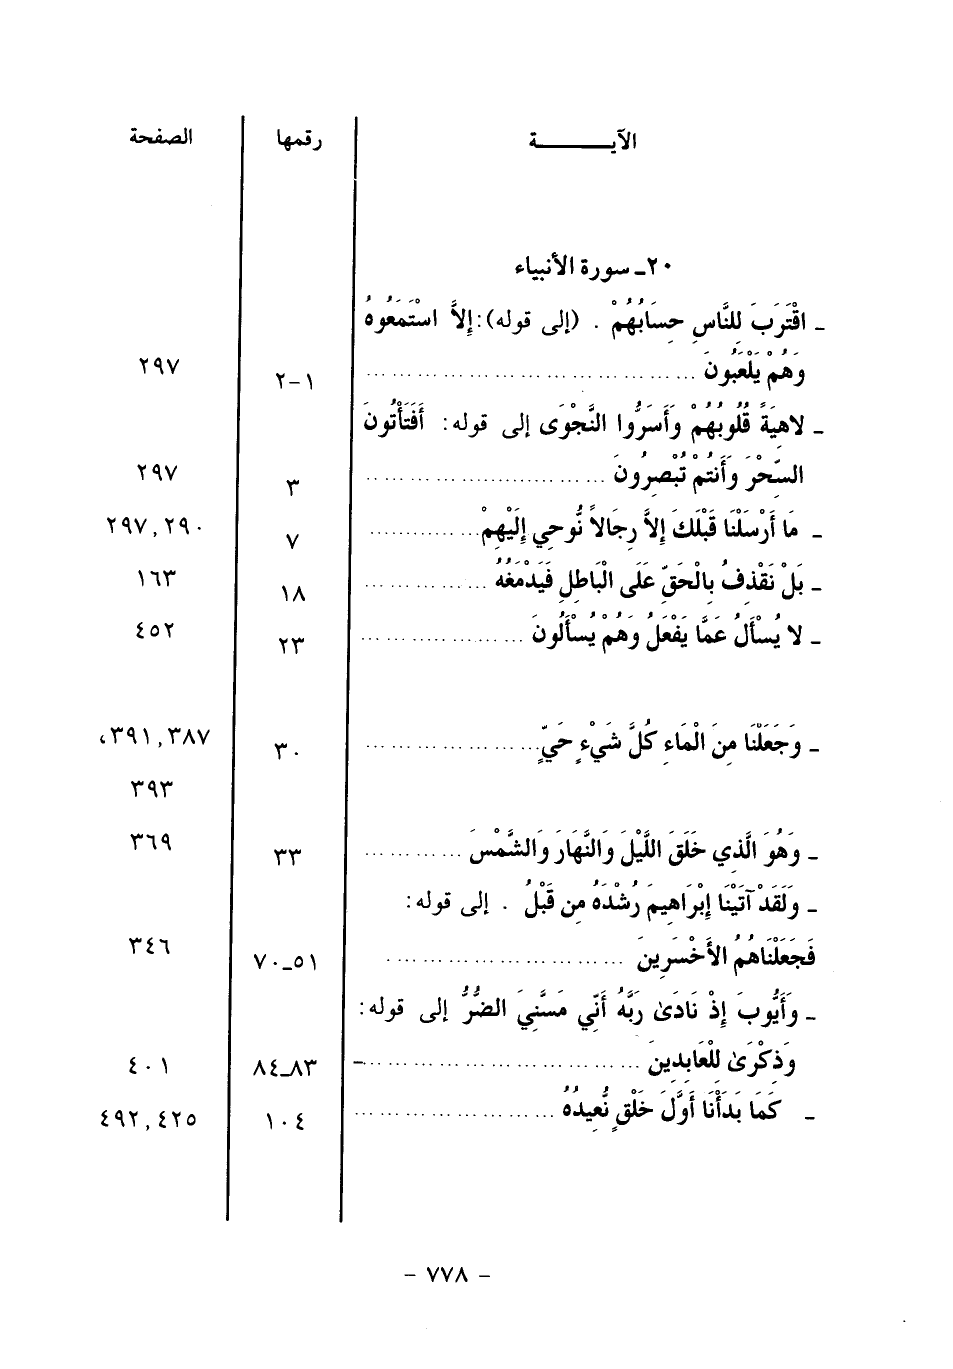 الآيــــــــة رقمها الصفحة
٢٠ـ سورة الأنبياء
ـ اقْتَرَبَ لِلنَّاسِ حِسَابُهُمْ . (إلى قوله): إِلاَّ اسْتَمَعُوهُ
وَهُمْ يَلْعَبُونَ ................................ ١-٢ ٢٩٧
ـ لاهِيَةً قُلُوبُهُمْ وَأَسَرُّوا النَّجْوَى إلى قوله: أَفَتَأْتُونَ
السِّحْرَ وَأَنتُمْ تُبْصِرُونَ ........................ ٣ ٢٩٧
ـ مَا أَرْسَلْنَا قَبْلَكَ إِلاَّ رِجَالاً نُّوحِي إِلَيْهِمْ ............... ٧ ٢٩٧,٢٩٠
ـ بَلْ نَقْذِفُ بِالْحَقِّ عَلَى الْبَاطِلِ فَيَدْمَغُهُ ............... ١٨ ١٦٣
ـ لا يُسْأَلُ عَمَّا يَفْعَلُ وَهُمْ يُسْأَلُونَ .................. ٢٣ ٤٥٢
ـ وَجَعَلْنَا مِنَ الْمَاءِ كُلَّ شَيْءٍ حَيٍّ .................. ٣٠ ٣٩١,٣٨٧،
٣٩٣
ـ وَهُوَ الَّذِي خَلَقَ اللَّيْلَ وَالنَّهَارَ وَالشَّمْسَ ............ ٣٣ ٣٦٩
ـ وَلَقَدْ آتَيْنَا إِبْرَاهِيمَ رُشْدَهُ مِن قَبْلُ . إلى قوله:
فَجَعَلْنَاهُمُ الأَخْسَرِينَ ........................ ٥١ـ٧٠ ٣٤٦
ـ وَأَيُّوبَ إِذْ نَادَىٰ رَبَّهُ أَنِّي مَسَّنِيَ الضُّرُّ إلى قوله:
وَذِكْرَىٰ لِلْعَابِدِينَ ........................ـ ٨٣ـ٨٤ ٤٠١
ـ كَمَا بَدَأْنَا أَوَّلَ خَلْقٍ نُّعِيدُهُ ..................... ١٠٤ ٤٩٢,٤٢٥
- ٧٧٨ -